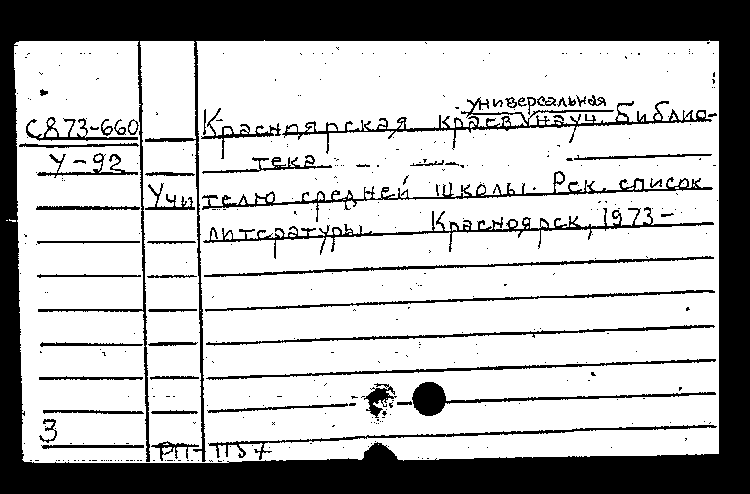 универсальная
С873-660 Красноярская краев. науч. библио-
У-92 тека
Учителю средней школы. Рек. список
литературы. Красноярск, 1973-
3